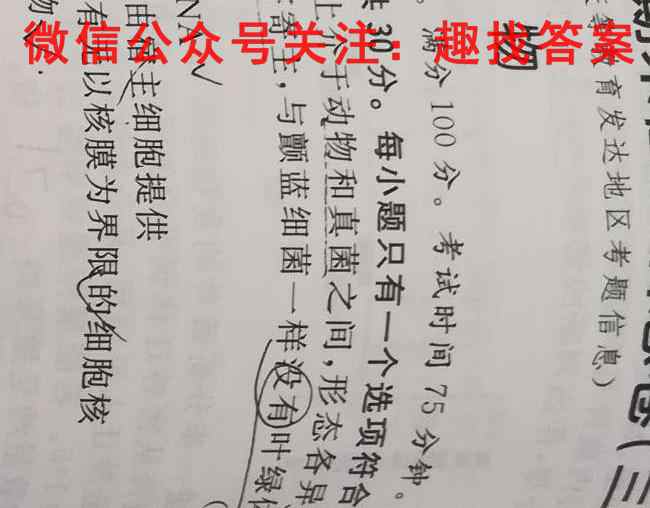 微信公众号关注：趣找答案
卷(三
教育发达地区考题信息)
物
满分100分。考试时间75分钟。
30分。每小题只有一个选项符合
介于动物和真菌之间,形态各异
寄主,与颤蓝细菌一样没有叶绿体
NA
由宿主细胞提供
有无以核膜为界限的细胞核
物